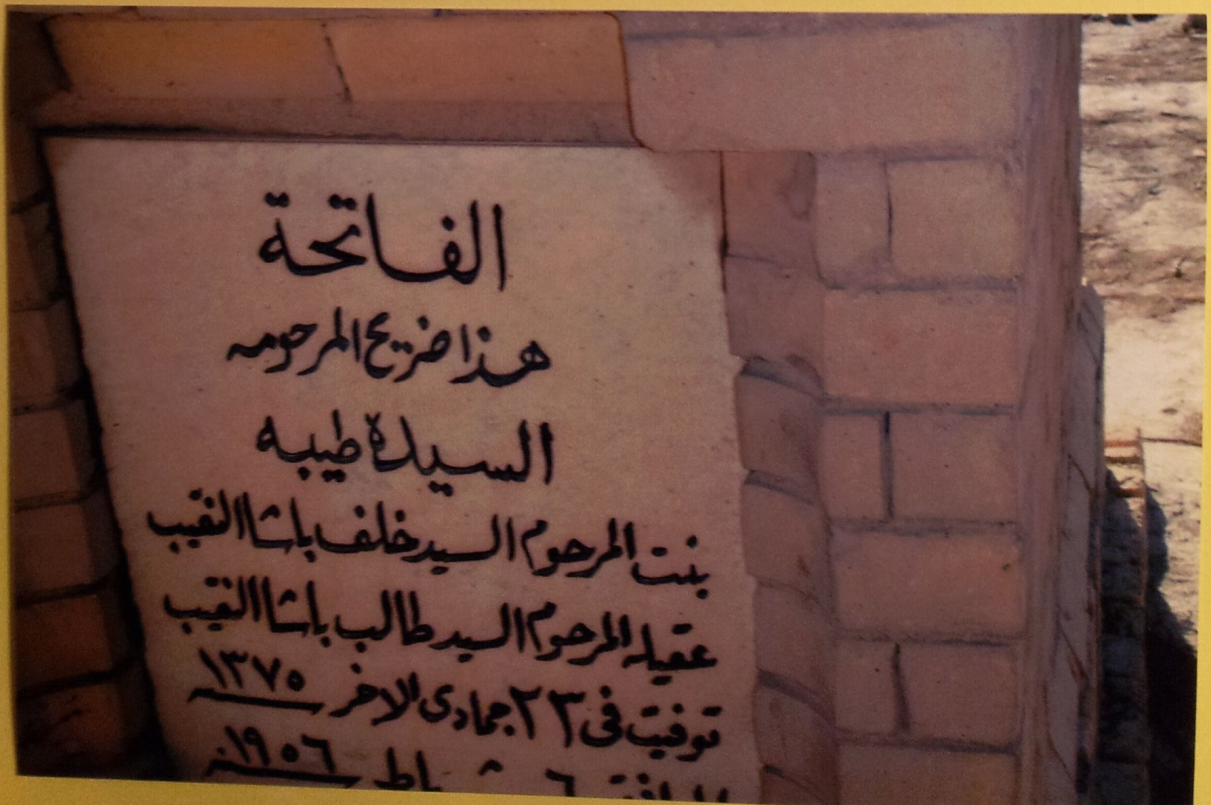 الفاتحة
هذا ضريح المرحومه
السيدة طيبه
بنت المرحوم السيد خلف باشا النقيب
عقيله المرحوم السيد طالب باشا النقيب
توفيت في ٢٣ جمادى الاخر ١٣٧٥
الموافق ٦ شباط ١٩٥٦